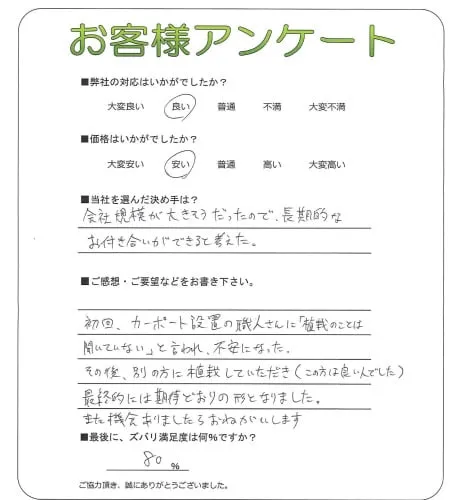 お客様アンケート
■弊社の対応はいかがでしたか？
大変良い 良い 普通 不満 大変不満
■価格はいかがでしたか？
大変安い 安い 普通 高い 大変高い
■当社を選んだ決め手は？
会社規模が大きそうだったので、長期的な
お付き合いができると考えた。
■ご感想・ご要望などをお書き下さい。
初回、カーポート設置の職人さんに「植栽のことは
聞いていない」と言われ、不安になった。
その後、別の方に植栽していただき（この方は良い人でした）
最終的には期待どおりの形となりました。
また機会ありましたらおねがいします
■最後に、ズバリ満足度は何％ですか？
80 %
ご協力頂き、誠にありがとうございました。